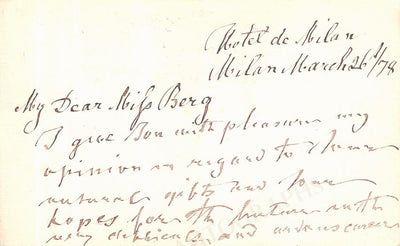 Hotel de Milan
Milan March 26/78
My Dear Miss Berg
I give You with pleasure my
opinion in regard to Your
natural gifts and Your
hopes for the future in the
very difficult and arduous career